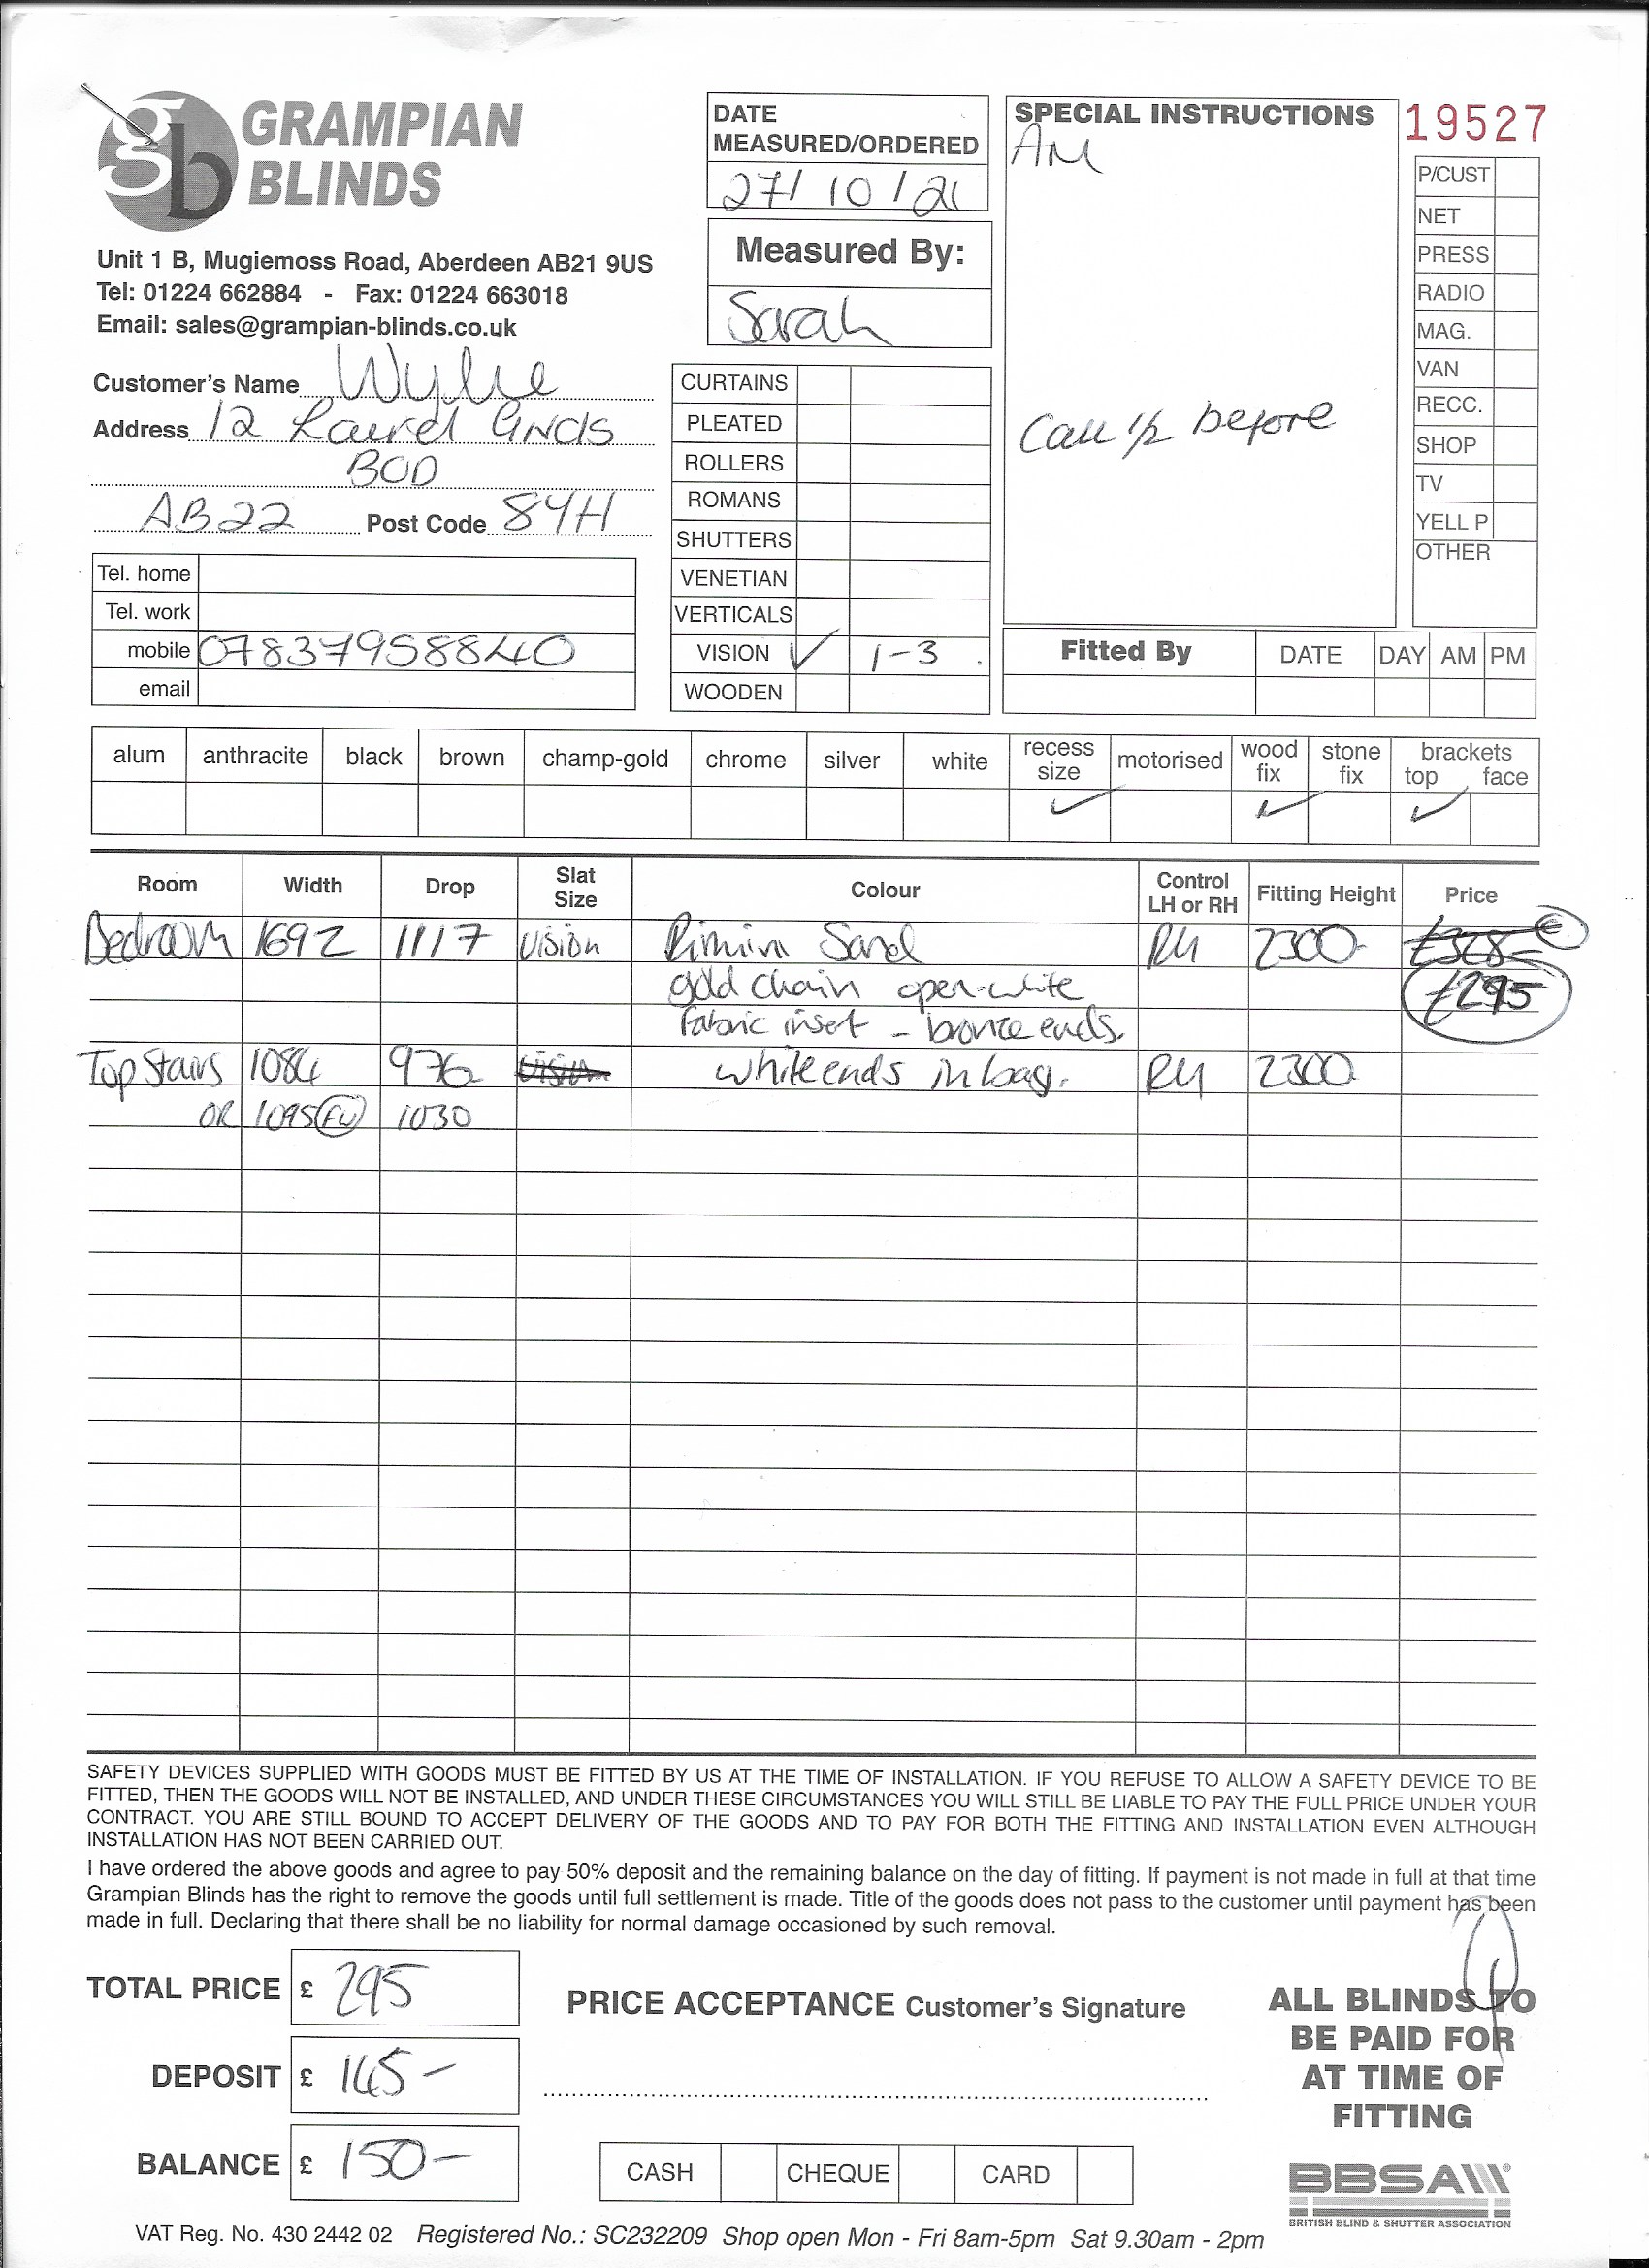 gb GRAMPIAN BLINDS
Unit 1 B, Mugiemoss Road, Aberdeen AB21 9US
Tel: 01224 662884 - Fax: 01224 663018
Email: sales@grampian-blinds.co.uk
Customer's Name Wylie
Address 12 Laurel Grnds
BOD
AB22 Post Code 8YH
Tel. home
Tel. work
mobile 07837958840
email
DATE MEASURED/ORDERED
27/10/21
Measured By:
Sarah
CURTAINS
PLEATED
ROLLERS
ROMANS
SHUTTERS
VENETIAN
VERTICALS
VISION ✓ 1-3
WOODEN
SPECIAL INSTRUCTIONS
AM
Call 1/2 before
19527
P/CUST
NET
PRESS
RADIO
MAG.
VAN
RECC.
SHOP
TV
YELL P
OTHER
Fitted By DATE DAY AM PM
alum anthracite black brown champ-gold chrome silver white recess size motorised wood fix stone fix brackets top face
✓ ✓ ✓
Room Width Drop Slat Size Colour Control LH or RH Fitting Height Price
Bedroom 1692 1117 Vision Rimini Sand RH 2300 £328
gold chain open-white £295
fabric inset - bronze ends.
Top Stairs 1084 976 Vision white ends in bag. RH 2300
OR 1095 (FW) 1030
SAFETY DEVICES SUPPLIED WITH GOODS MUST BE FITTED BY US AT THE TIME OF INSTALLATION. IF YOU REFUSE TO ALLOW A SAFETY DEVICE TO BE
FITTED, THEN THE GOODS WILL NOT BE INSTALLED, AND UNDER THESE CIRCUMSTANCES YOU WILL STILL BE LIABLE TO PAY THE FULL PRICE UNDER YOUR
CONTRACT. YOU ARE STILL BOUND TO ACCEPT DELIVERY OF THE GOODS AND TO PAY FOR BOTH THE FITTING AND INSTALLATION EVEN ALTHOUGH
INSTALLATION HAS NOT BEEN CARRIED OUT.
I have ordered the above goods and agree to pay 50% deposit and the remaining balance on the day of fitting. If payment is not made in full at that time
Grampian Blinds has the right to remove the goods until full settlement is made. Title of the goods does not pass to the customer until payment has been
made in full. Declaring that there shall be no liability for normal damage occasioned by such removal.
TOTAL PRICE £ 295
DEPOSIT £ 145-
BALANCE £ 150-
PRICE ACCEPTANCE Customer's Signature
CASH CHEQUE CARD
ALL BLINDS TO
BE PAID FOR
AT TIME OF
FITTING
BBSA
BRITISH BLIND & SHUTTER ASSOCIATION
VAT Reg. No. 430 2442 02 Registered No.: SC232209 Shop open Mon - Fri 8am-5pm Sat 9.30am - 2pm